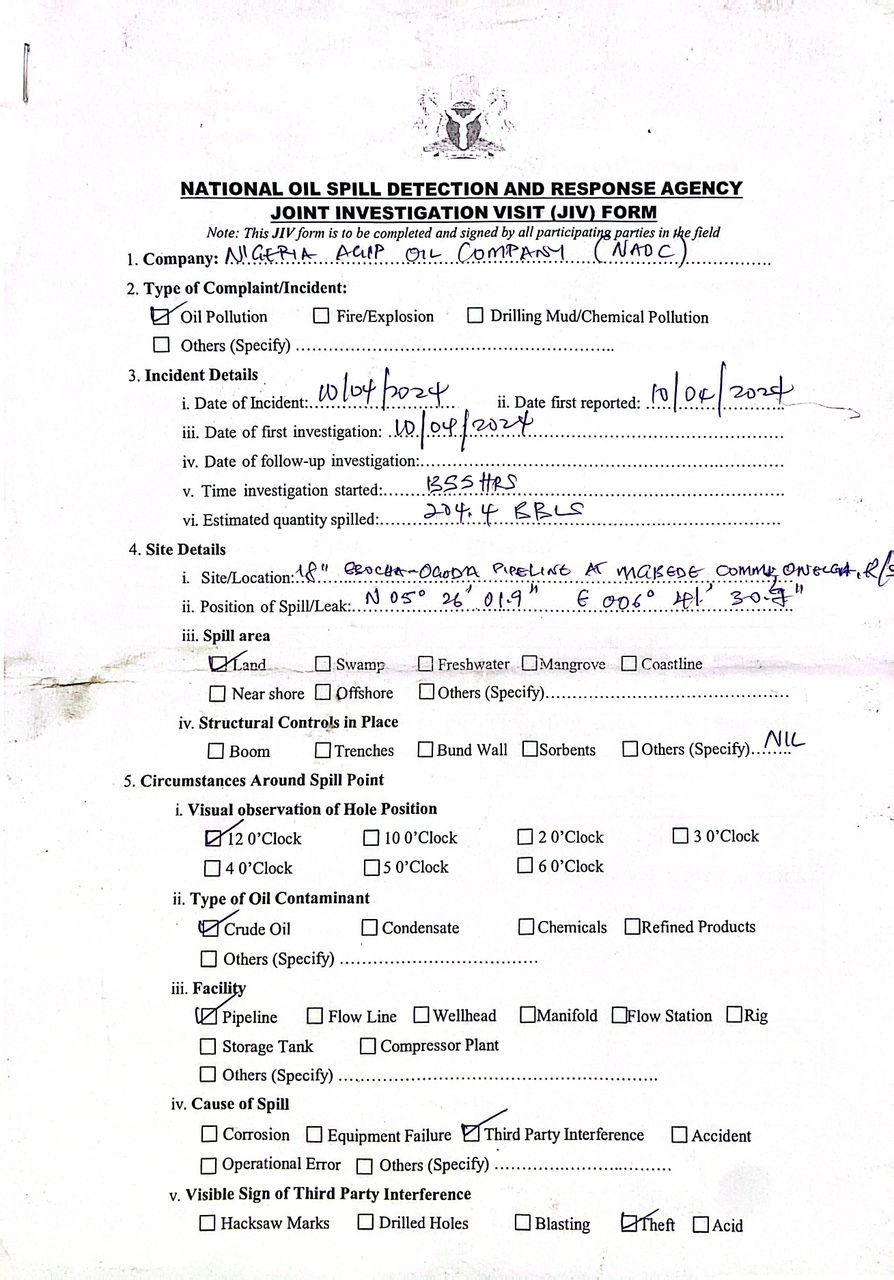 NATIONAL OIL SPILL DETECTION AND RESPONSE AGENCY
JOINT INVESTIGATION VISIT (JIV) FORM
Note: This JIV form is to be completed and signed by all participating parties in the field
1. Company: NIGERIA AGIP OIL COMPANY (NAOC)
2. Type of Complaint/Incident:
☑ Oil Pollution ☐ Fire/Explosion ☐ Drilling Mud/Chemical Pollution
☐ Others (Specify) ..........
3. Incident Details
i. Date of Incident: 10/04/2024 ii. Date first reported: 10/04/2024
iii. Date of first investigation: 10/04/2024
iv. Date of follow-up investigation:..........
v. Time investigation started: 1355HRS
vi. Estimated quantity spilled: 204.4 BBLS
4. Site Details
i. Site/Location: 18" EBOCHA-OGODA PIPELINE AT MGBEDE COMM, ONELGA, R/S
ii. Position of Spill/Leak: N 05° 26' 01.9" E 006° 41' 30."
iii. Spill area
☑ Land ☐ Swamp ☐ Freshwater ☐ Mangrove ☐ Coastline
☐ Near shore ☐ Offshore ☐ Others (Specify)..........
iv. Structural Controls in Place
☐ Boom ☐ Trenches ☐ Bund Wall ☐ Sorbents ☐ Others (Specify) NIL
5. Circumstances Around Spill Point
i. Visual observation of Hole Position
☑ 12 0’Clock ☐ 10 0’Clock ☐ 2 0’Clock ☐ 3 0’Clock
☐ 4 0’Clock ☐ 5 0’Clock ☐ 6 0’Clock
ii. Type of Oil Contaminant
☑ Crude Oil ☐ Condensate ☐ Chemicals ☐ Refined Products
☐ Others (Specify) ..........
iii. Facility
☑ Pipeline ☐ Flow Line ☐ Wellhead ☐ Manifold ☐ Flow Station ☐ Rig
☐ Storage Tank ☐ Compressor Plant
☐ Others (Specify) ..........
iv. Cause of Spill
☐ Corrosion ☐ Equipment Failure ☑ Third Party Interference ☐ Accident
☐ Operational Error ☐ Others (Specify) ..........
v. Visible Sign of Third Party Interference
☐ Hacksaw Marks ☐ Drilled Holes ☐ Blasting ☑ Theft ☐ Acid